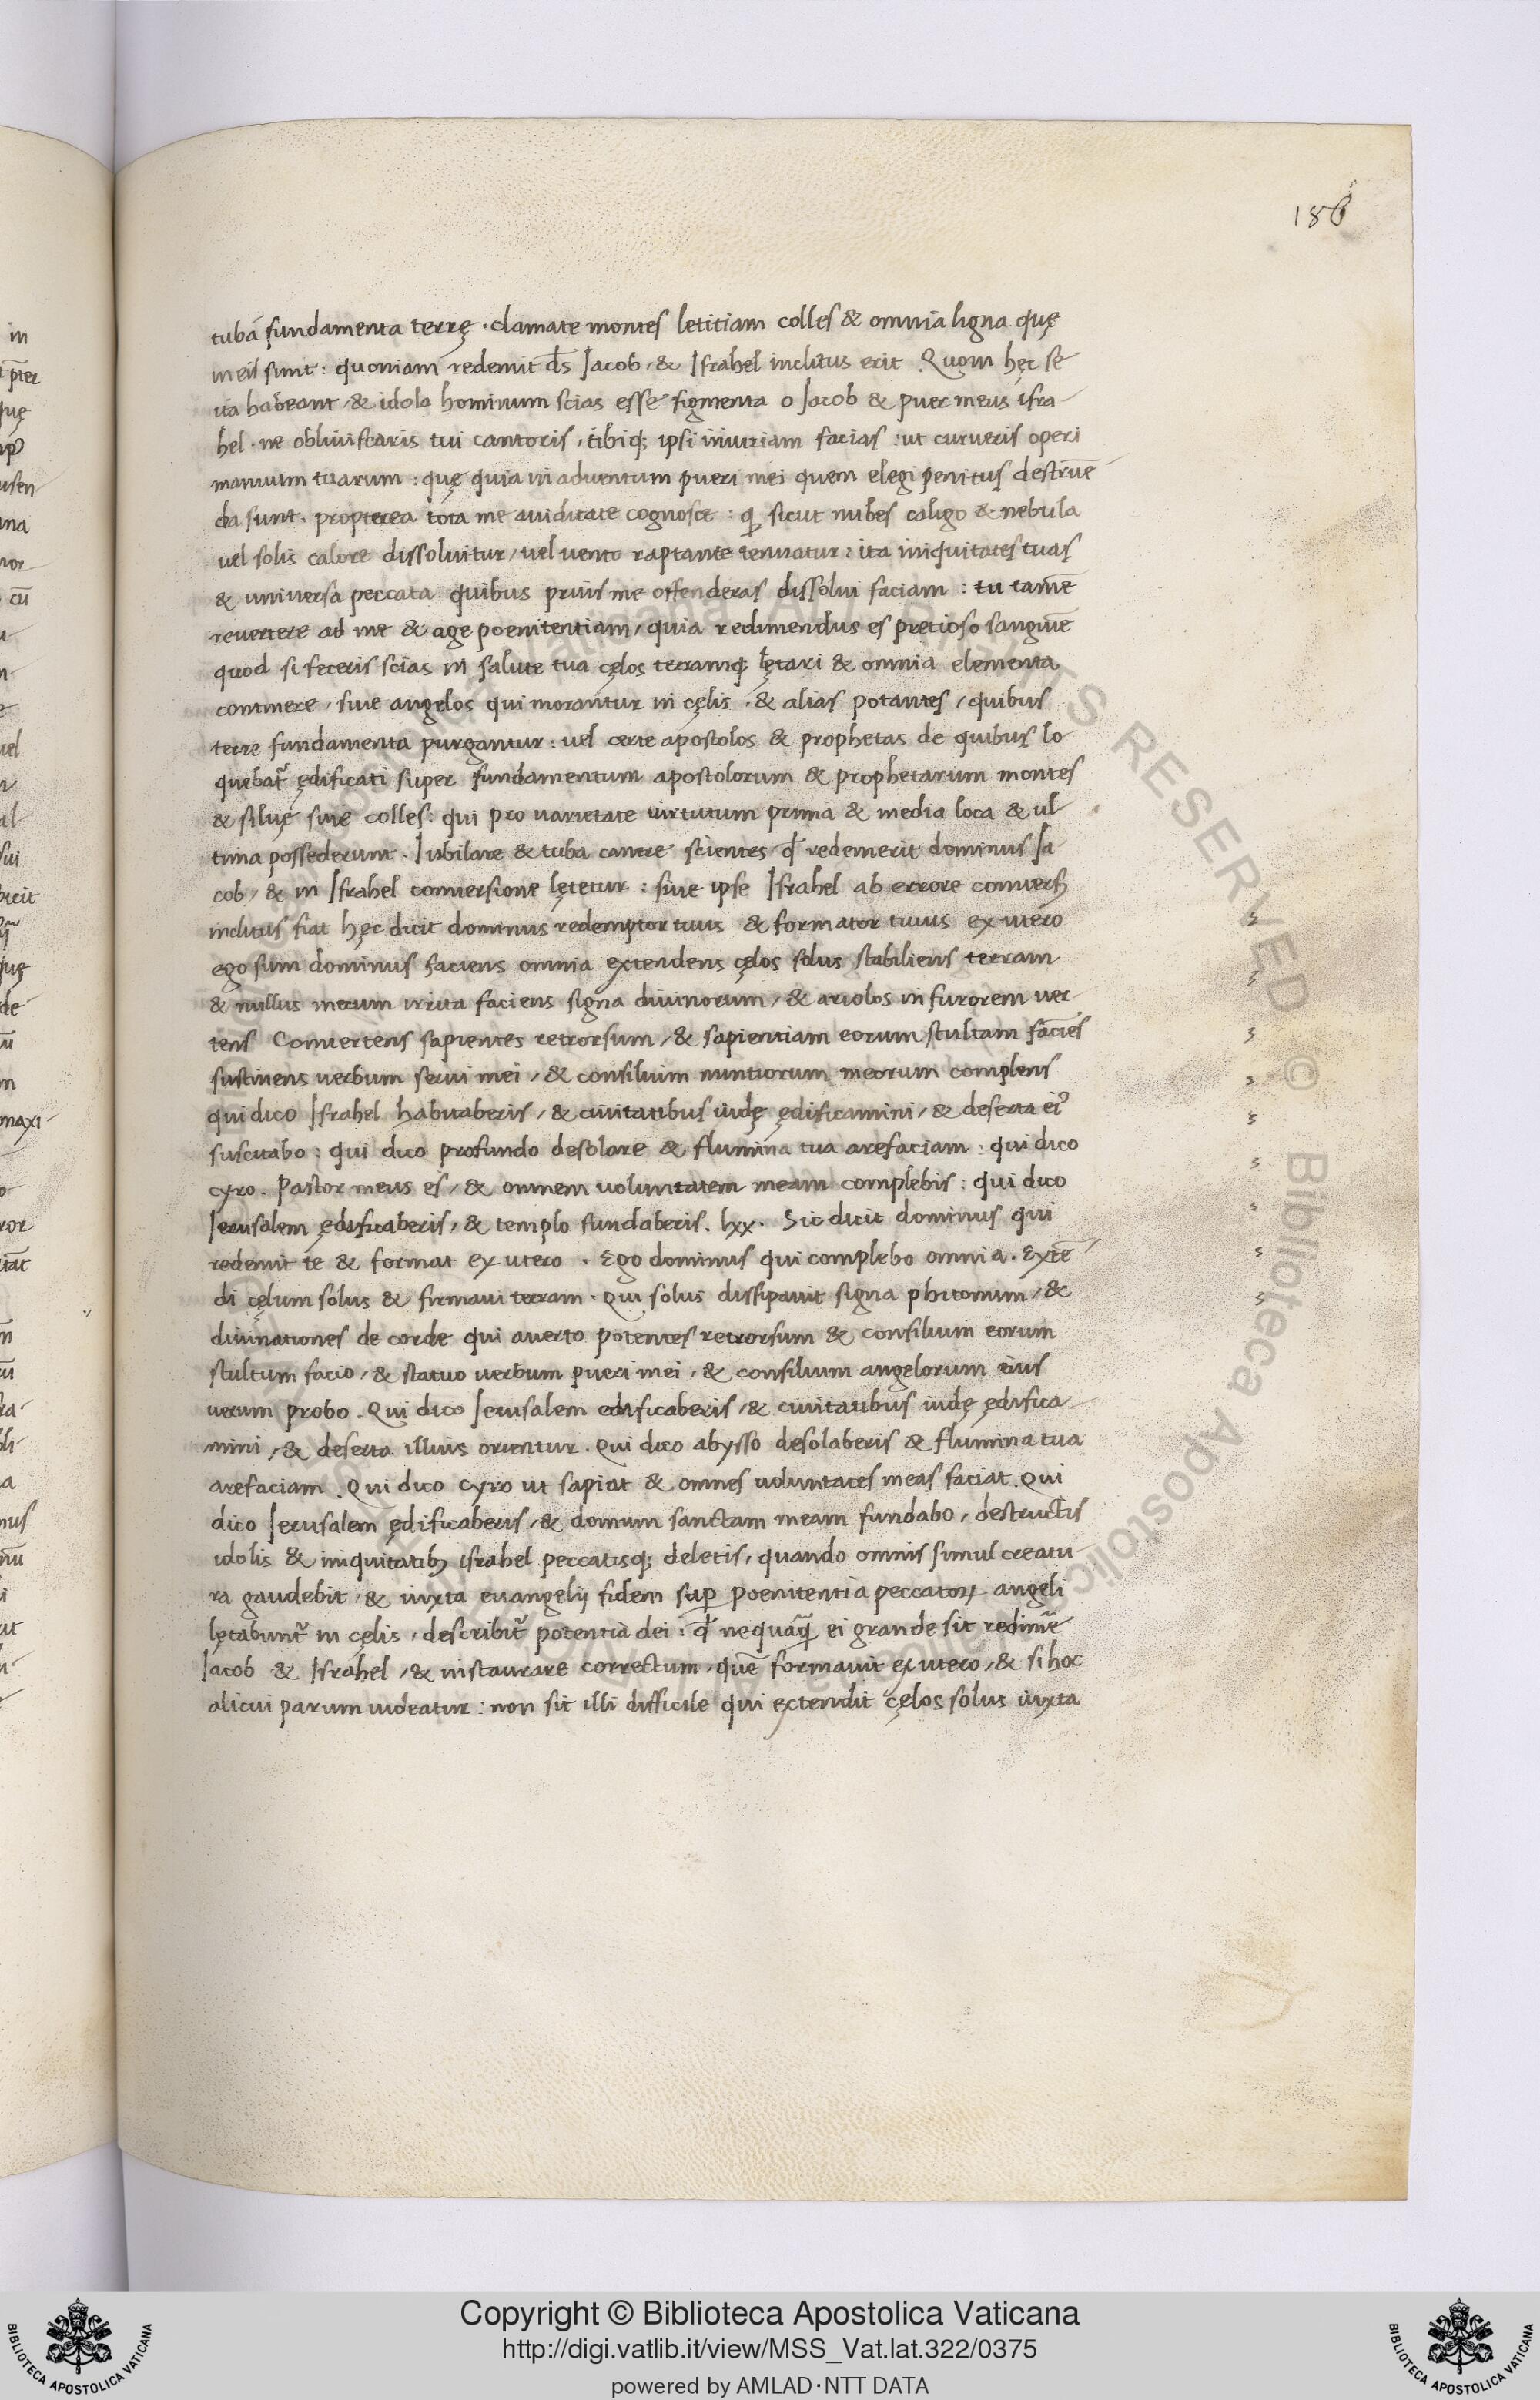 186
tubā fundamenta terrę . clamate montes letitiam colles & omnia ligna quę
in eis sunt : quoniam redemit d̄s Jacob , & Israhel inclitus erit . Quom hęc se
ita habeant , & idola hominum scias esse figmenta o Jacob & puer meus isra-
hel . ne obliuiscaris tui cantoris , tibiq; ipsi iniuriam facias : ut curueris operi
manuum tuarum : quę quia in aduentum pueri mei quem elegi penitus destruē
da sunt . propterea tota me auiditate cognosce : ꝙ sicut nubes caligo & nebula
uel solis calore dissoluitur , uel uento raptante tenuatur : ita iniquitates tuas
& uniuersa peccata quibus prius me offenderas dissolui faciam : tu tamē
reuertere ad me & age poenitentiam , quia redimendus es pretioso sanguīe
quod si feceris scias in salute tua cęlos terramq; lętari & omnia elementa
continere , siue angelos qui morantur in cęlis . & alias potantes , quibus
terre fundamenta purgantur : uel certe apostolos & prophetas de quibus lo
quebat᷑ ędificati super fundamentum apostolorum & prophetarum montes
& siluę siue colles : qui pro uarietate uirtutum prima & media loca & ul
tima possederunt . Jubilare & tuba canere scientes ꝙ redemerit dominus Ja
cob , & in Israhel conuersione lętetur : siue ipse Israhel ab errore conuersꝰ
inclitus fiat hęc dicit dominus redemptor tuus & formator tuus ex utero
ego sum dominus faciens omnia extendens cęlos solus stabiliens terram
& nullus mecum irrita faciens signa diuinorum , & ariolos in furorem uer-
tens Conuertens sapientes retrorsum , & sapientiam eorum stultam faciēs
sustinens uerbum serui mei , & consilium nuntiorum meorum complens
qui dico Israhel habitaberis , & ciuitatibus iudę ędificamini , & deserta eiꝰ
suscitabo : qui dico profundo desolare & flumina tua arefaciam : qui dico
cyro . Pastor meus es , & omnem uoluntatem meam complebis : qui dico
Jerusalem ędificaberis , & templo fundaberis . lxx . Sic dicit dominus qui
redemit te & format ex utero . Ego dominus qui complebo omnia . Extē
di cęlum solus & firmaui terram . Qui solus dissipauit signa phitonum , &
diuinationes de corde qui auerto potentes retrorsum & consilium eorum
stultum facio , & statuo uerbum pueri mei , & consilium angelorum eius
uerum probo . Qui dico Jerusalem edificaberis , & ciuitatibus iudę ędifica
mini , & deserta illius orientur . Qui dico abysso desolaberis & flumina tua
arefaciam . Qui dico Cyro ut sapiat & omnes uoluntates meas faciat . Qui
dico Jerusalem ędificaberis , & domum sanctam meam fundabo , destructis
idolis & iniquitatibꝫ israhel peccatisq; deletis , quando omnis simul creatu-
ra gaudebit , & iuxta euangelij fidem suꝑ poenitentia peccatoꝝ angeli
lętabunt᷑ in cęlis , describit᷑ potentia dei : ꝙ nequaꝙ̃ ei grande sit redimē
Jacob & Israhel , & instaurare correctum , quē formauit ex utero , & si hoc
alicui parum uideatur : non sit illi difficile qui extendit cęlos solus iuxta
Copyright © Biblioteca Apostolica Vaticana
http://digi.vatlib.it/view/MSS_Vat.lat.322/0375
powered by AMLAD·NTT DATA